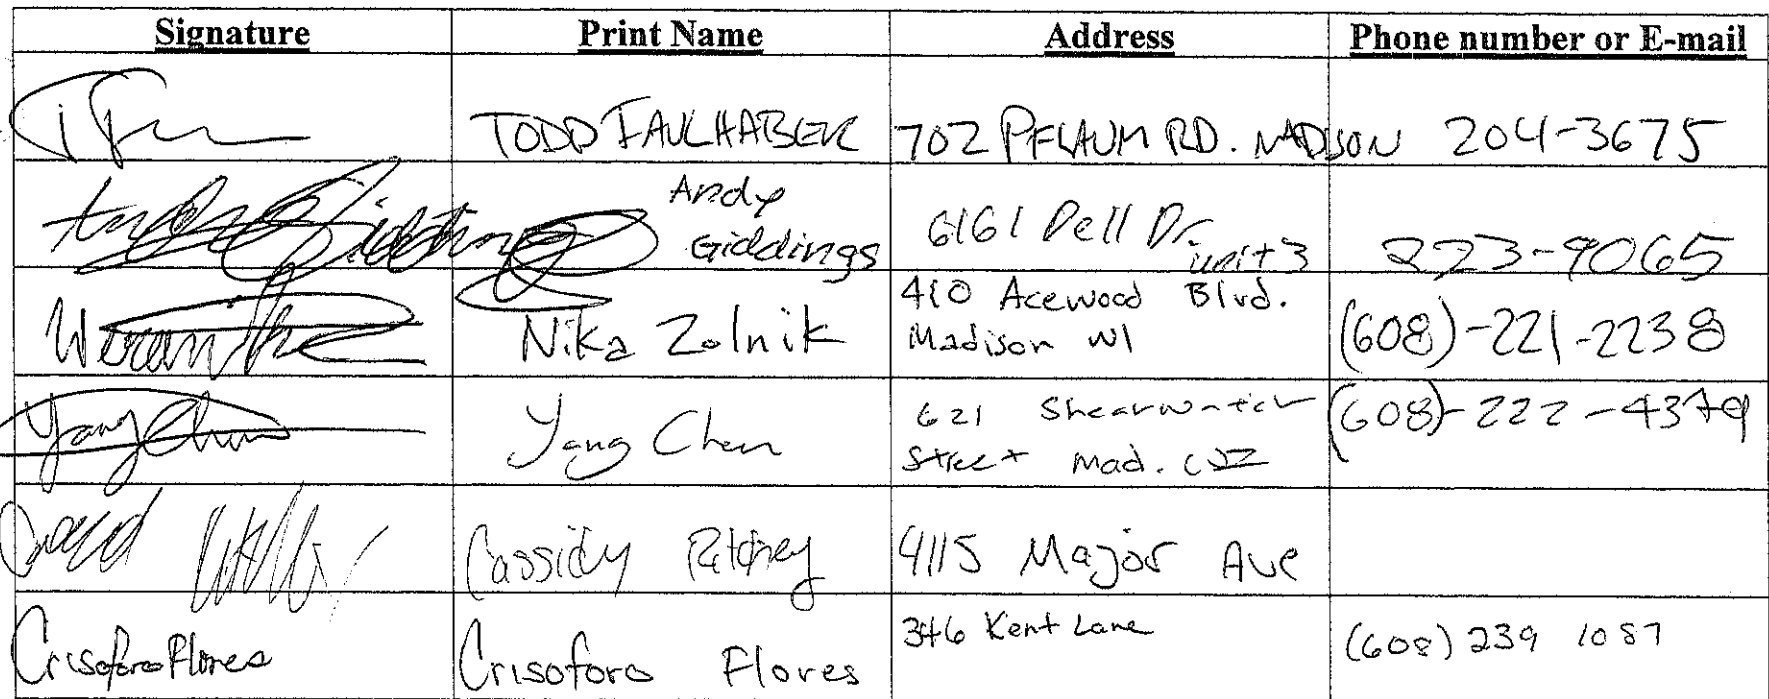 Signature Print Name Address Phone number or E-mail
TODD FAULHABER 702 PFLAUM RD. MADISON 204-3675
Andy
Giddings
6161 Dell Dr.
unit 3
223-9065
Nika Zolnik
410 Acewood Blvd.
Madison WI
(608)-221-2238
Yang Chen Yang Chen
621 Shearwater
Street Mad. WI
(608)-222-4379
Cassidy Ritchey 4115 Major Ave
Crisoforo Flores Crisoforo Flores 346 Kent Lane (608) 239 1087